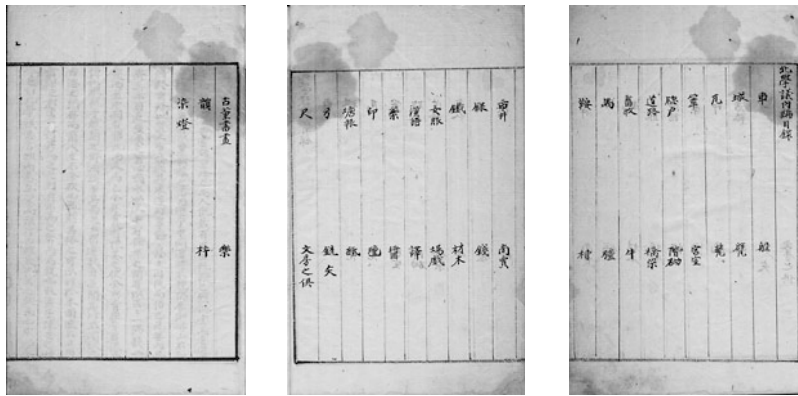 北學議內編目錄
車 船
城 甓
瓦 甕
簞 宮室
牕戶 階砌
道路 橋梁
畜牧 牛
馬 驢
鞍 槽
市井 商賈
銀 錢
鐵 材木
女服 場戱
漢語 譯
藥 醬
印 氈
塘報 紙
弓 銃矢
尺 文房之具
古董書畫